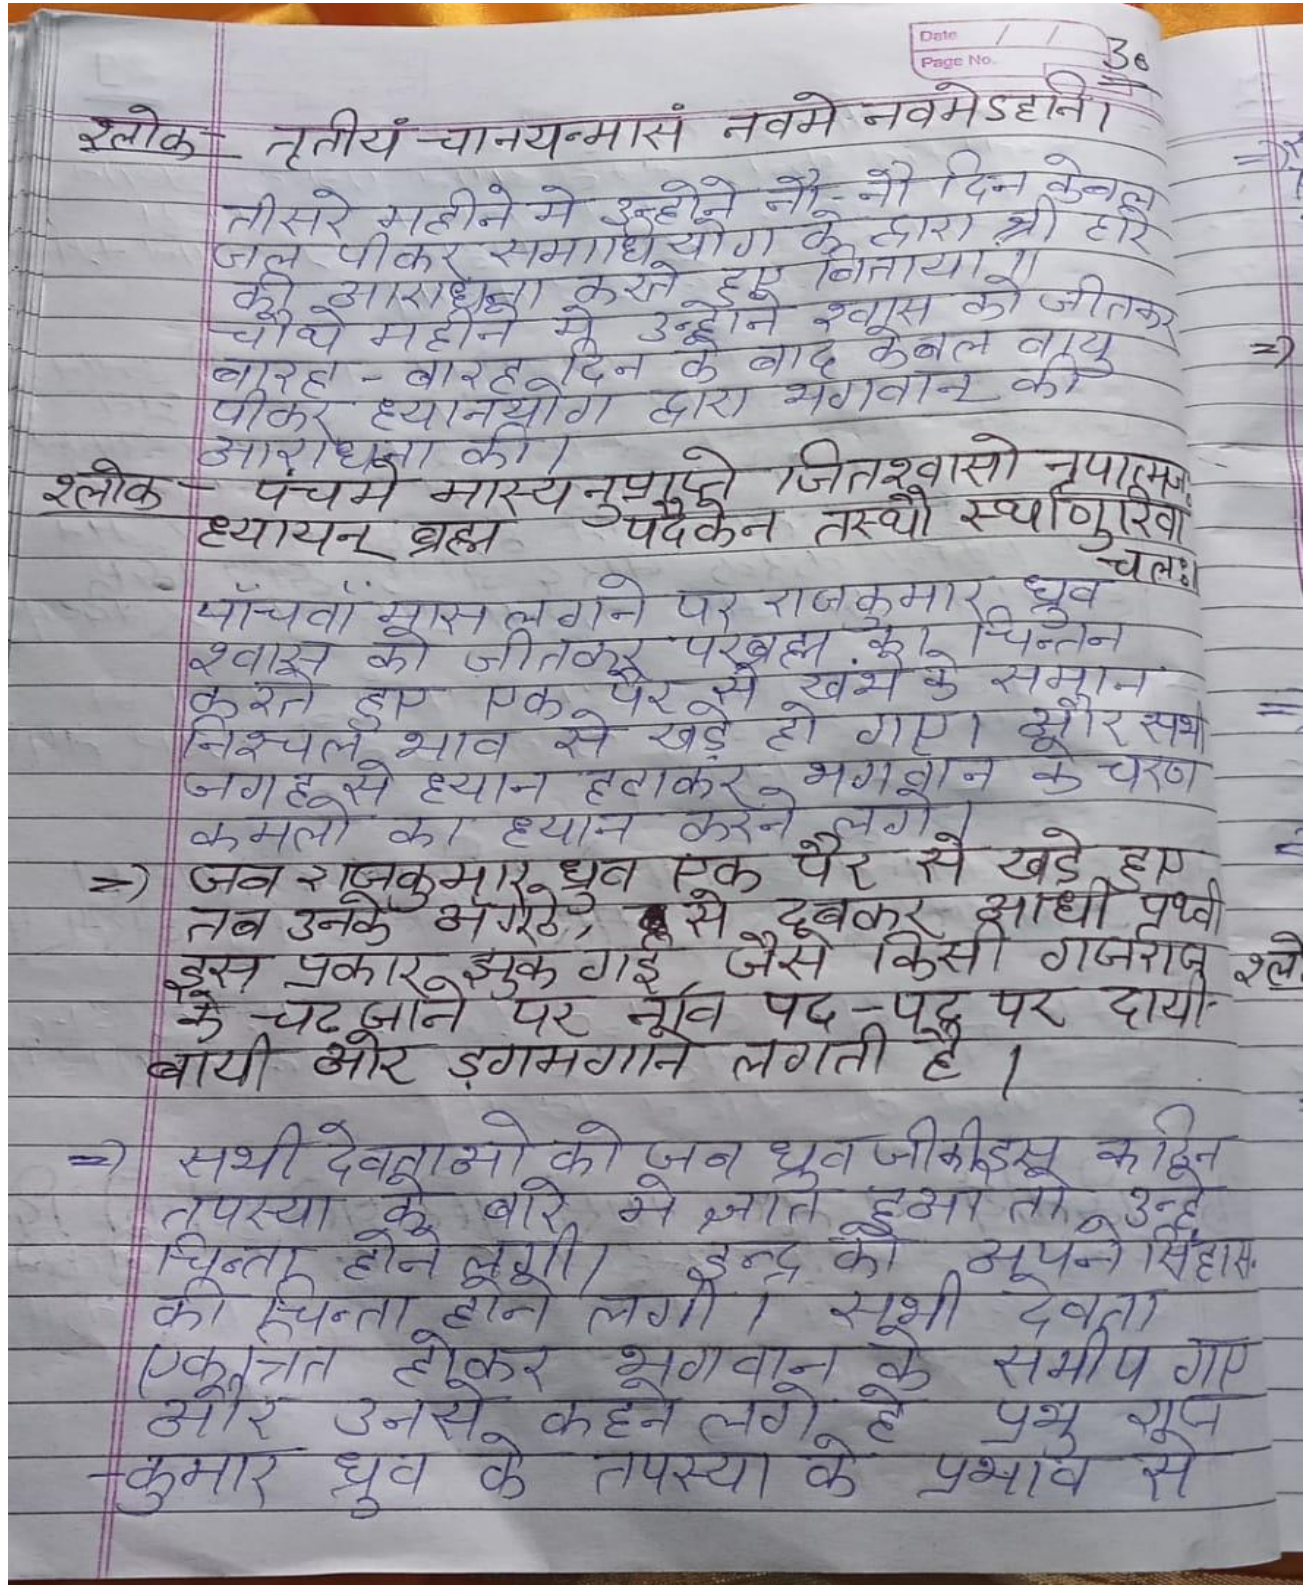 Date / /
Page No. 30
श्लोक - तृतीयं चानयन्मासं नवमे नवमेऽहनि।
तीसरे महीने मे उन्होने नौ-नौ दिन केवल
जल पीकर समाधियोग के द्वारा श्री हरि
की आराधना करते हुए बिताया।
चौथे महीने मे उन्होने श्वास को जीतकर
बारह - बारह दिन के बाद केवल वायु
पीकर ध्यानयोग द्वारा भगवान की
आराधना की।
श्लोक - पंचमे मास्यनुप्राप्ते जितश्वासो नृपात्मजः
ध्यायन् ब्रह्म पदैकेन तस्थौ स्थाणुरिवा
चलः।
पाँचवाँ मास लगने पर राजकुमार ध्रुव
श्वास को जीतकर परब्रह्म का चिन्तन
करते हुए एक पैर से खंभे के समान
निश्चल भाव से खड़े हो गए। और सभी
जगह से ध्यान हटाकर भगवान के चरण
कमलो का ध्यान करने लगे।
=) जब राजकुमार ध्रुव एक पैर से खडे हुए
तब उनके अंगूठे, से दबकर आधी प्रथ्वी
इस प्रकार झुक गई जैसे किसी गजराज
के चढ जाने पर नाव पद - पद पर दायी
बायी ओर ड़गमगाने लगती है।
=) सभी देवताओ को जब ध्रुव जी की इस कठिन
तपस्या के बारे मे ज्ञात हुआ तो उन्हे
चिन्ता होने लगी। इन्द्र को अपने सिंहास
की चिन्ता होने लगी। सभी देवता
एकत्रित होकर भगवान के समीप गए
और उनसे कहने लगे हे प्रभु राज
-कुमार ध्रुव के तपस्या के प्रभाव से
=)
=)
श्लो